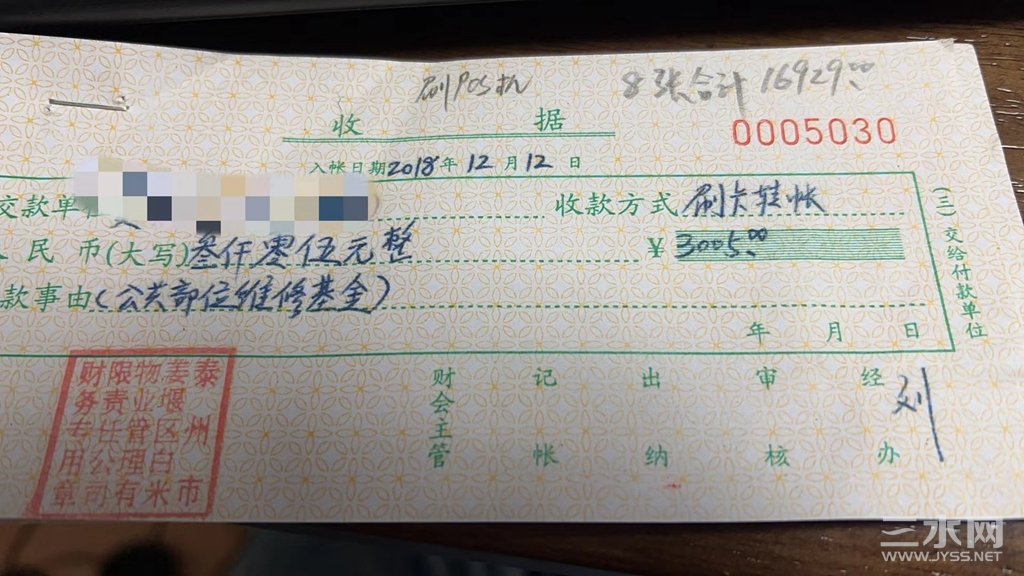 刷POS机
8张合计16929.00
收 据
0005030
入帐日期2018年12月12日
交款单位 收款方式 刷卡转帐
人民币(大写)叁仟零伍元整 ¥3005.00
款事由(公共部位维修基金)
年 月 日
(三)交给付款单位
财会主管 记帐 出纳 审核 经办 刘
泰州市姜堰区白米物业管理有限责任公司财务专用章
三水网
WWW.JYSS.NET